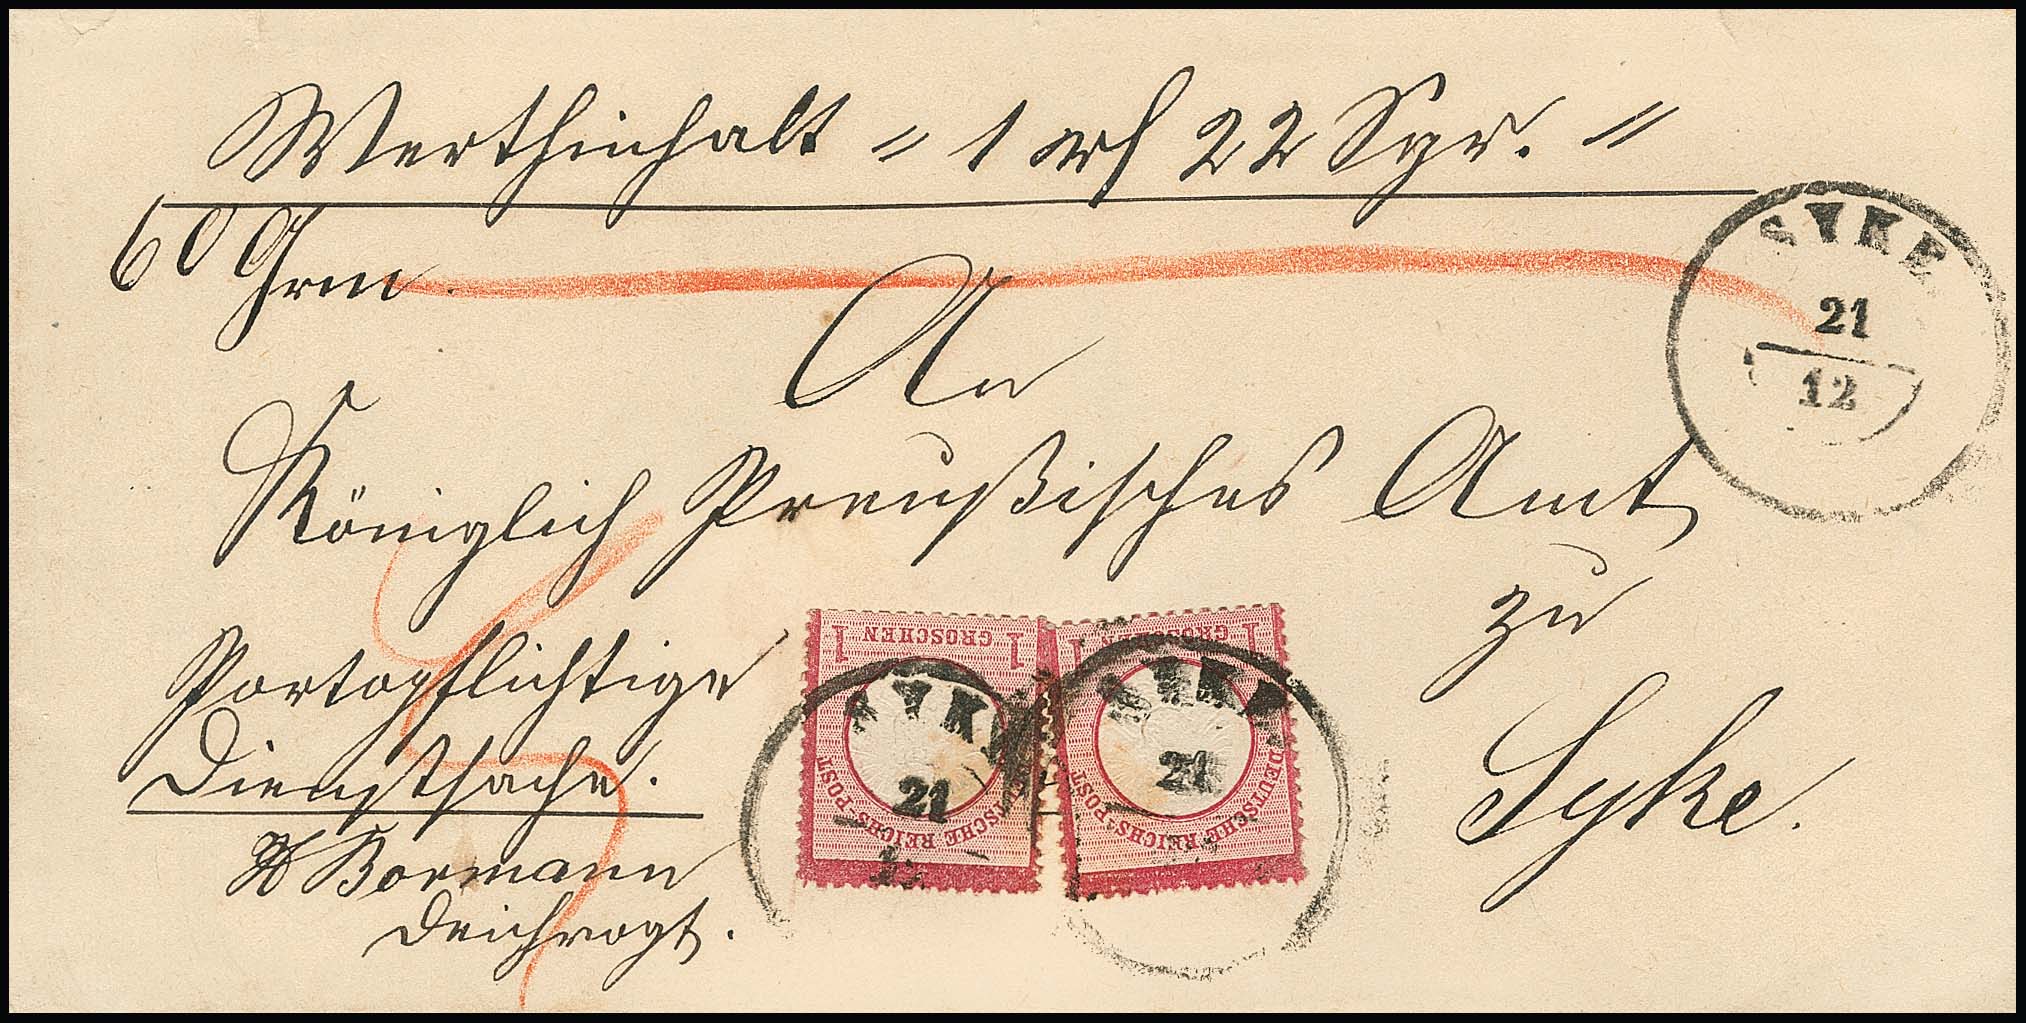 Werthinhalt = 1 rℓ 22 Sgr. =
60 Grm.
SYKE
21
12
An
Königlich Preußisches Amt
zu
Syke.
Portopflichtige
Dienstsache.
Bormann
Deichvogt.
1 GROSCHEN 1
DEUTSCHE REICHS-POST
SYKE
21
12
1 GROSCHEN 1
DEUTSCHE REICHS-POST
SYKE
21